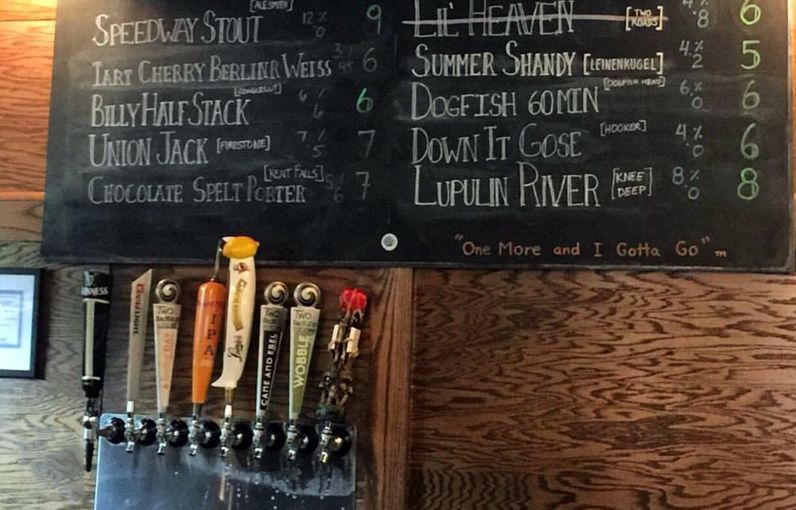 [ALESMITH]
SPEEDWAY STOUT 12% 0 9
TART CHERRY BERLINR WEISS 6
BILLY HALF STACK 6% 6
UNION JACK [FIRESTONE] 7% 5 7
[KENT FALLS]
CHOCOLATE SPELT PORTER 7
LIL' HEAVEN [TWO ROADS] 4% 8 6
SUMMER SHANDY [LEINENKUGEL] 4% 2 5
[DOGFISH HEAD]
DOGFISH 60 MIN 6% 0 6
DOWN IT GOSE [HOOKER] 4% 0 6
LUPULIN RIVER [KNEE DEEP] 8% 0 8
"ONE MORE AND I GOTTA GO" m
GUINNESS
TWO
IPA
TWO
CANE AND EBEL
TWO
WOBBLE